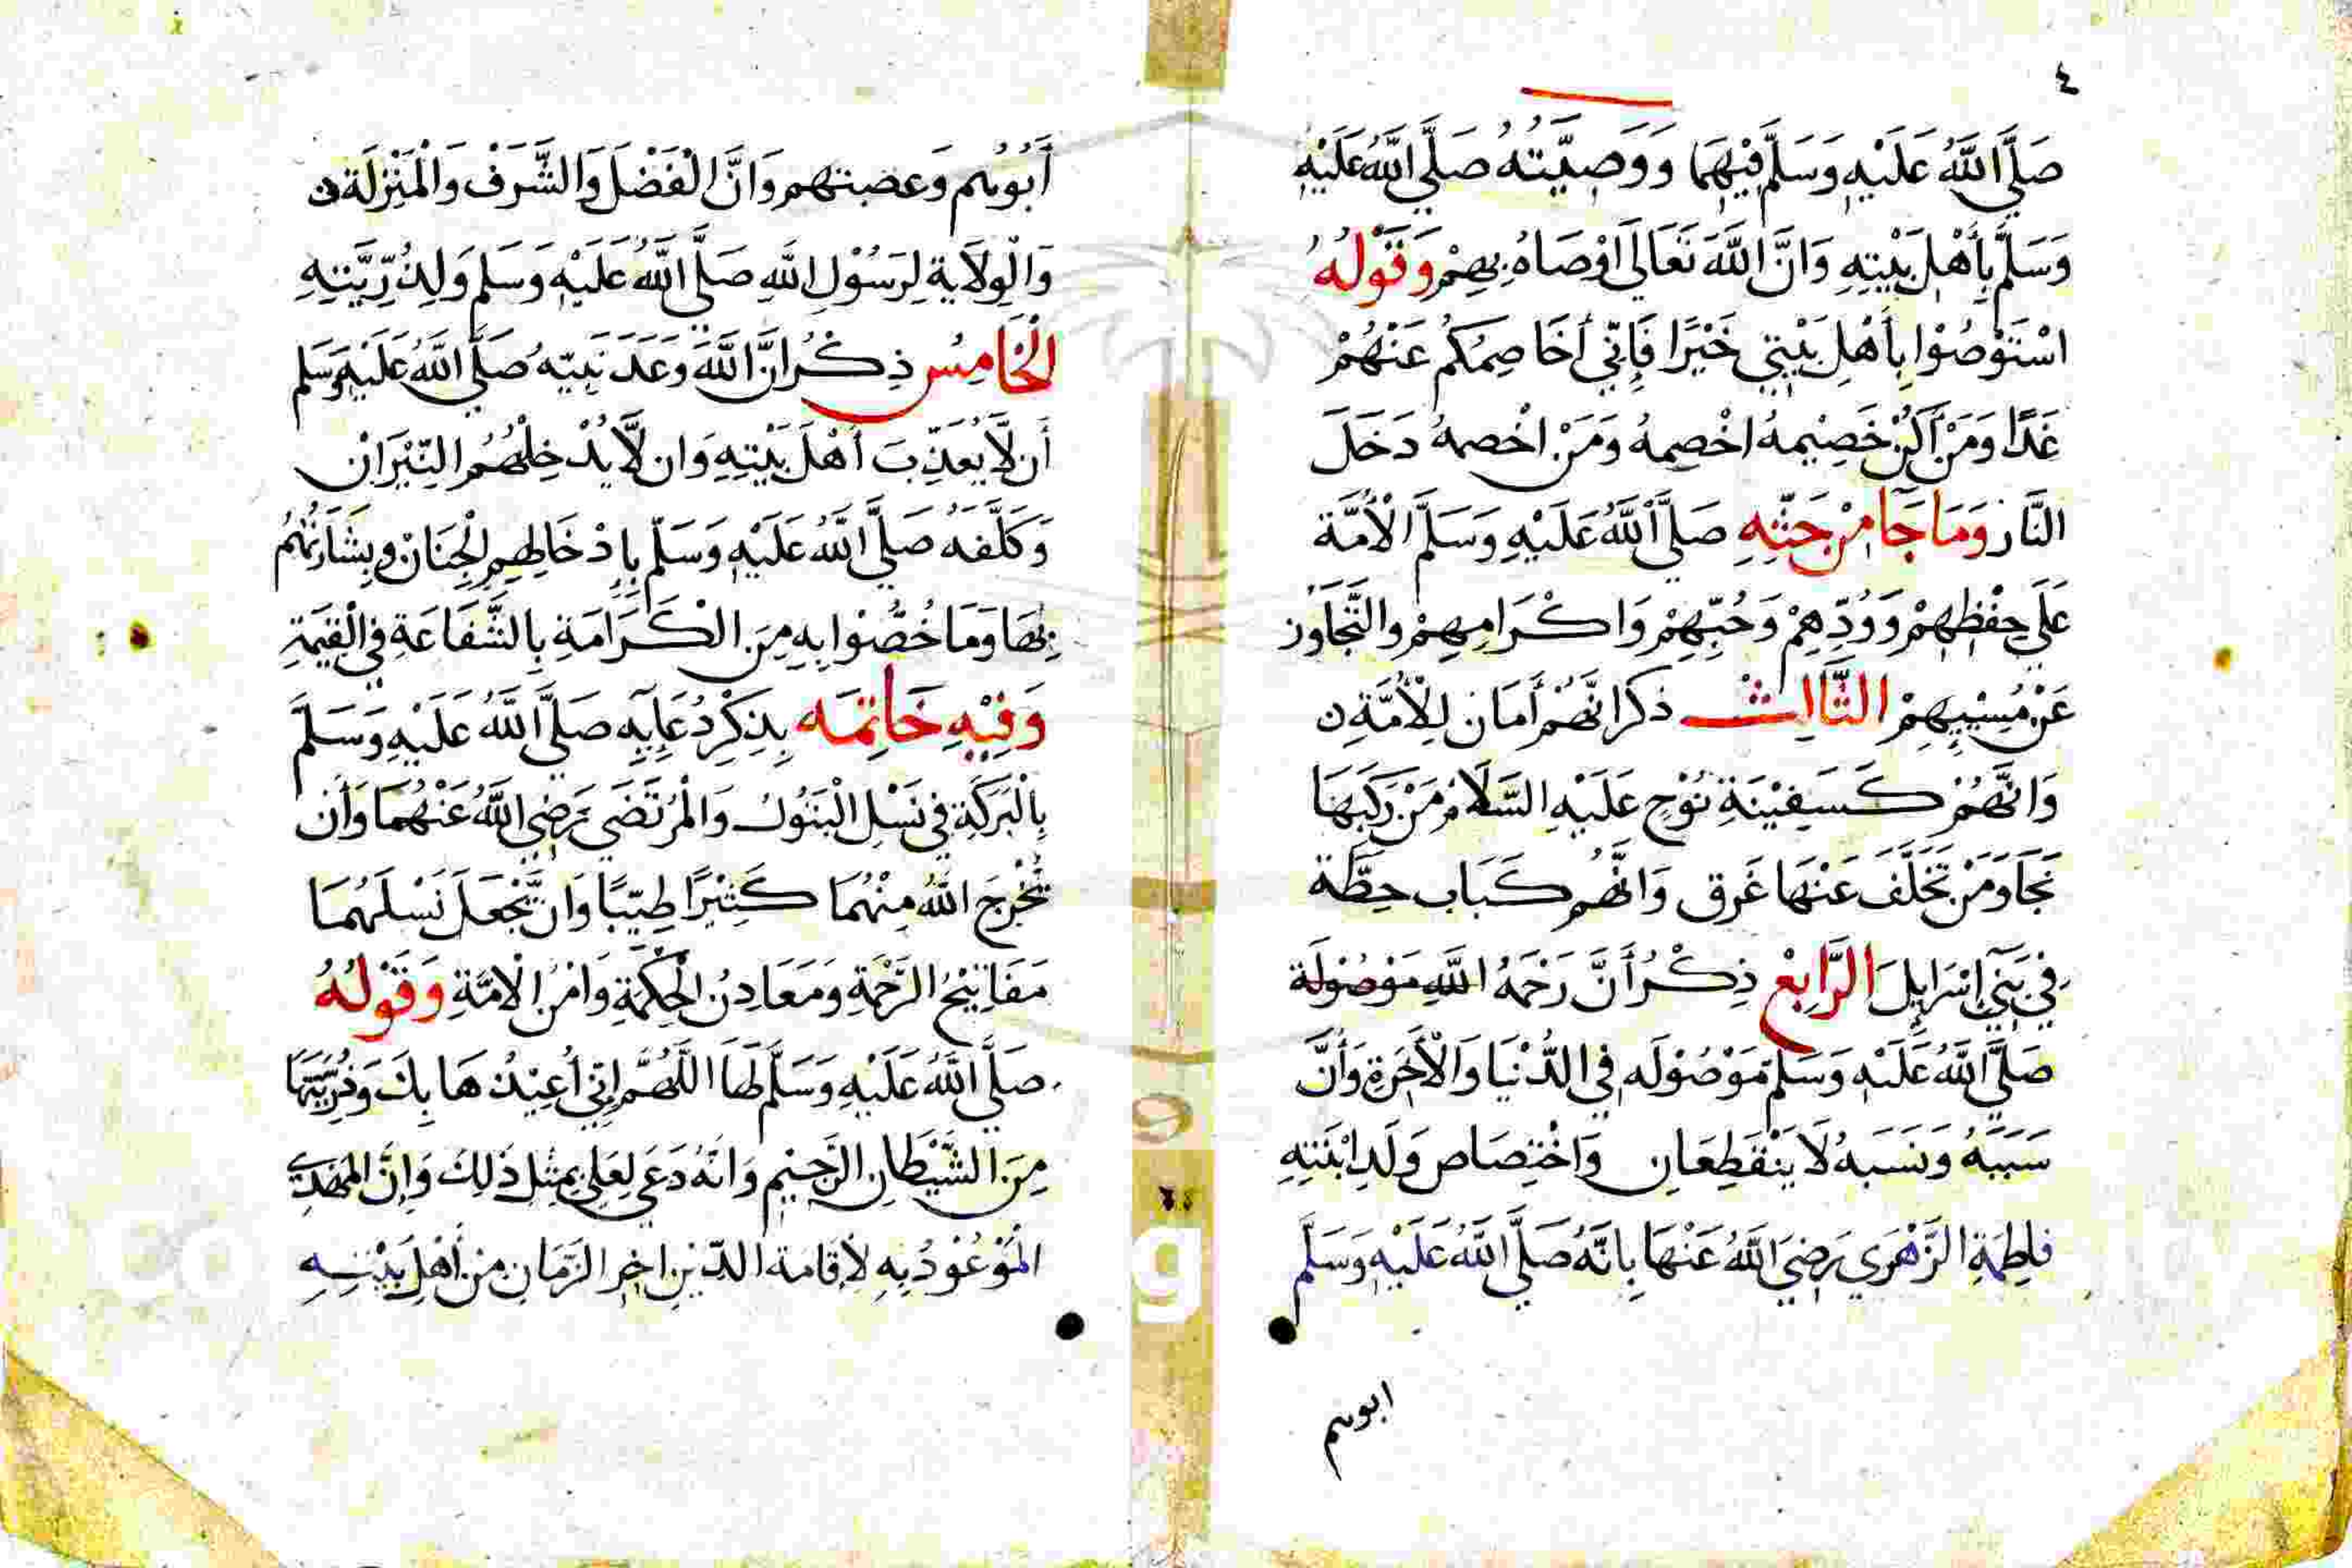 ٤
صَلَّى اللَّهُ عَلَيْهِ وَسَلَّمَ فِيْهِمَا وَوَصِيَّتُهُ صَلَّى اللَّهُ عَلَيْهِ
وَسَلَّمَ بِأَهْلِ بَيْتِهِ وَاَنَّ اللَّهَ تَعَالَى اَوْصَاهُ بِهِمْ وَقَوْلُهُ
اسْتَوْصُوْا بِأَهْلِ بَيْتِي خَيْرًا فَإِنِّي أُخَاصِمُكُمْ عَنْهُمْ
غَدًا وَمَنْ أَكُنْ خَصِيْمهُ اخْصِمهُ وَمَنْ اخْصمهُ دَخَلَ
النَّار وَمَا جَآ مِنْ حَثِّهِ صَلَّى اللَّهُ عَلَيْهِ وَسَلَّمَ الْأُمَّة
عَلَى حِفْظِهِمْ وَوُدِّهِمْ وَحُبِّهِمْ وَاكْرَامِهِمْ وَالتَّجَاوُز
عَنْ مُسِيْيِهِمْ الثَّالِث ذكر انَّهُمْ أَمَان لِلْأُمَّةِ
وَانَّهُمْ كَسَفِيْنَةِ نُوْحٍ عَلَيْهِ السَّلَامُ مَنْ رَكَبَهَا
نَجَا وَمَنْ تَخَلَّفَ عَنْهَا غَرِق وَانَّهُم كَبَابِ حِطَّة
فِي بَنِي اِسْرَايِلَ الرَّابِعْ ذِكْرُ أَنَّ رَحْمَهُ اللَّهِ مَوْصُوْلَة
صَلَّى اللَّهُ عَلَيْهِ وَسَلَّمَ مَوْصُوْلَه فِي الدُّنْيَا وَالْأَخَرِةِ وَأَنَّ
سَبَبَهُ وَنَسَبَهُ لَا يَنْقَطِعَانِ وَاخْتِصَاصِ وَلَدِ ابْنَتِهِ
فَاطِمَةِ الزَّهْرَى رَضِيَ اللَّهُ عَنْهَا بِانَّهُ صَلَّى اللَّهُ عَلَيْهِ وَسَلَّم
ابوهم
أَبُوْهُم وَعصبتهم وَانَّ الْفَضْلَ وَالشَّرَفْ وَالْمَنْزِلَة
وَالْوِلَايَة لِرَسُوْلِ اللَّهِ صَلَّى اللَّهُ عَلَيْهِ وَسَلم وَلِذُرِّيَّتِهِ
الْخَامِسْ ذِكْرُ اَنَّ اللَّهَ وَعَدَ نَبِيّه صَلَّى اللَّهُ عَلَيْهِ وَسَلم
أَن لَّا يُعَذِّبَ أَهْلَ بَيْتِهِ وَان لَّا يُدْخِلْهُمُ النِّيْرَانْ
وَكَلَّفَهُ صَلَّى اللَّهُ عَلَيْهِ وَسَلَّم بِإِدْخَالِهِمِ الْجِنَانْ وِبِشَارَتُهُمُ
بِهَا وَمَا خُصُّوْا بِهِ مِنَ الْكَرَامَةِ بِالشَّفَاعَةِ فِي الْقِيمَةِ
وَفِيْهِ خَاتِمَه بِذِكْرِ دُعَايِهِ صَلَّى اللَّهُ عَلَيْهِ وَسَلَّمَ
بِالْبَرَكَةِ فِي نَسْلِ الْبَتُوْل وَالْمُرْتَضَى رَضِيَ اللَّهُ عَنْهُمَا وَأَن
يُّخْرِجَ اللَّهُ مِنْهُمَا كَثِيْرًا طِيِّبًا وَانْ يَّجْعَلَ نَسْلَهُمَا
مَفَاتِيْحُ الرَّحْمَةِ وَمَعَادِنُ الْحِكْمَةِ وَامْنُ الْامَّةِ وَقَوْلُهُ
صَلَّى اللَّهُ عَلَيْهِ وَسَلَّم لَهَا اللَّهُمَّ إِنِّي أُعِيْذُ هَا بِكَ وَذُرِّيَّتِهَا
مِنَ الشَّيْطَانِ الرَّجِيْمِ وَانَّهُ دَعَى لِعَلِي بِمِثْلِ ذَلِكَ وَاِنَّ الْمَهْدِيّ
الْمَوْعُوْدُ بِهِ لِاقَامَة الدِّيْنِ اخِر الزَّمَانِ مِنْ أَهْلِ بَيْتِهِ